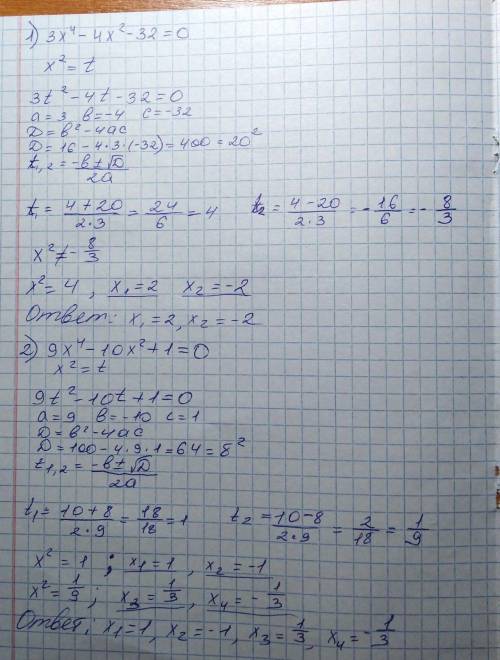 1) 3x⁴-4x²-32=0
x²=t
3t²-4t-32=0
a=3 в=-4 c=-32
D=в²-4ac
D=16-4·3·(-32)=400=20²
t₁,₂=(-в±√D)/2a
t₁=(4+20)/(2·3)=24/6=4 t₂=(4-20)/(2·3)=-16/6=-8/3
x²≠-8/3
x²=4, x₁=2 x₂=-2
Ответ: x₁=2, x₂=-2
2) 9x⁴-10x²+1=0
x²=t
9t²-10t+1=0
a=9 в=-10 c=1
D=в²-4ac
D=100-4·9·1=64=8²
t₁,₂=(-в±√D)/2a
t₁=(10+8)/(2·9)=18/18=1 t₂=(10-8)/(2·9)=2/18=1/9
x²=1; x₁=1, x₂=-1
x²=1/9; x₃=1/3, x₄=-1/3
Ответ: x₁=1, x₂=-1, x₃=1/3, x₄=-1/3